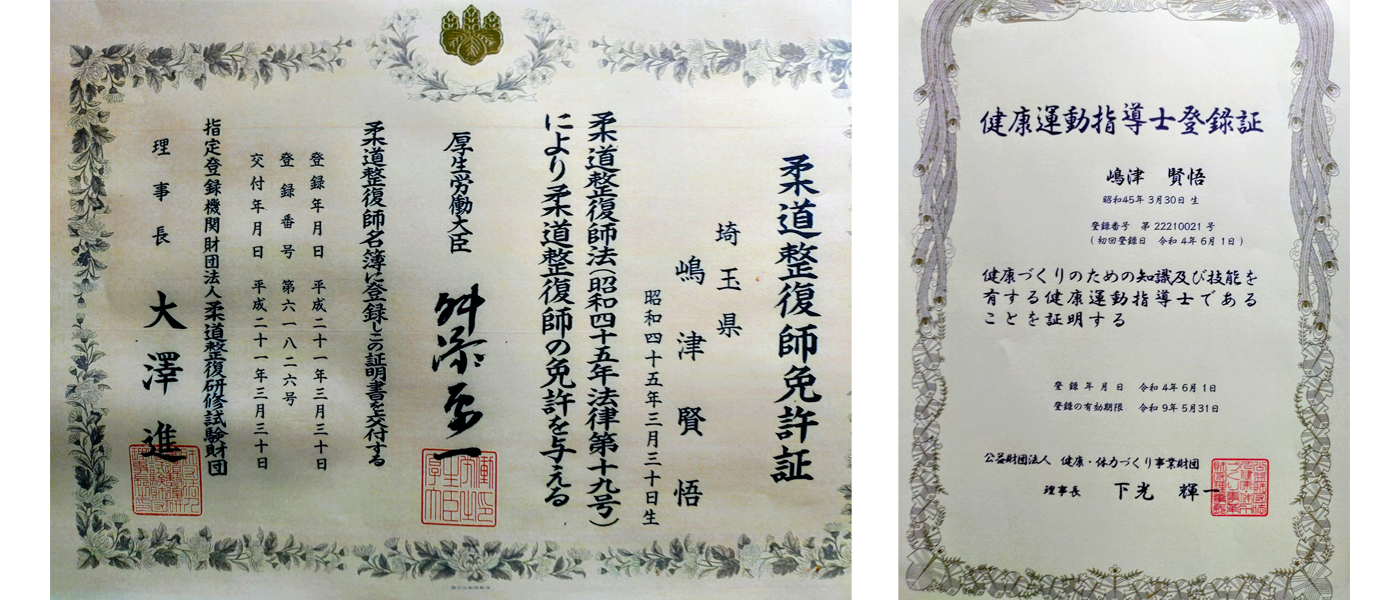 柔道整復師免許証
埼玉県
嶋津賢悟
昭和四十五年三月三十日生
柔道整復師法(昭和四十五年法律第十九号)
により柔道整復師の免許を与える
厚生労働大臣
舛添要一
柔道整復師名簿に登録しこの証明書を交付する
登録年月日 平成二十一年三月三十日
登録番号 第六一八二六号
交付年月日 平成二十一年三月三十日
指定登録機関財団法人柔道整復研修試験財団
理事長 大澤進
健康運動指導士登録証
嶋津 賢悟
昭和45年 3月30日 生
登録番号 第 22210021 号
( 初回登録日 令和 4年 6月 1日 )
健康づくりのための知識及び技能を
有する健康運動指導士である
ことを証明する
登録年月日 令和 4年 6月 1日
登録の有効期限 令和 9年 5月31日
公益財団法人 健康・体力づくり事業財団
理事長 下光 輝一